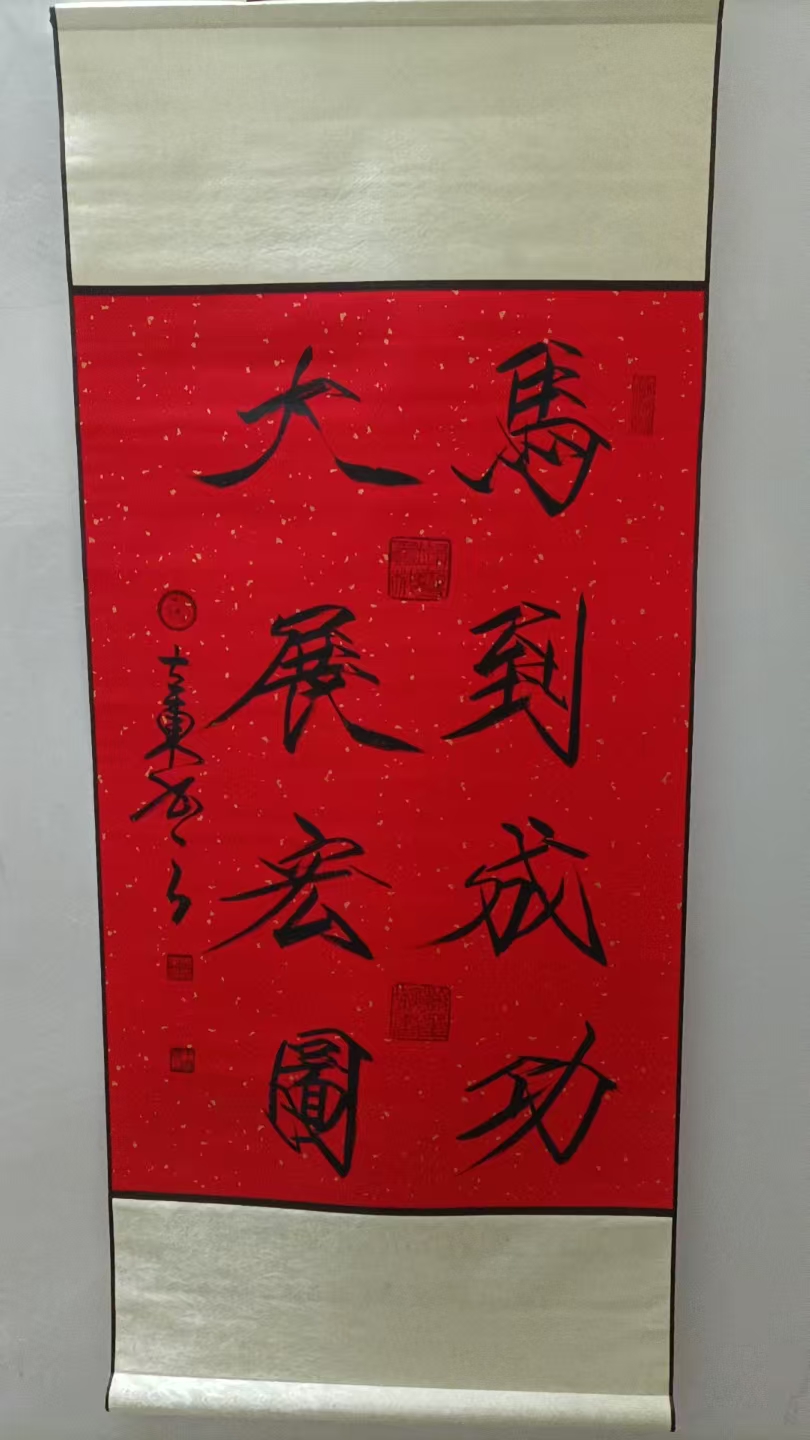 馬到成功
大展宏圖